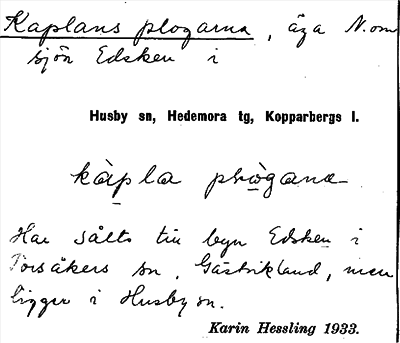 Kaplans plogarna, äga N. om
sjön Edsken i
Husby sn, Hedemora tg, Kopparbergs l.
kàpla plògana
Har sålts till byn Edsken i
Torsåkers sn, Gästrikland, men
ligger i Husby sn.
Karin Hessling 1933.